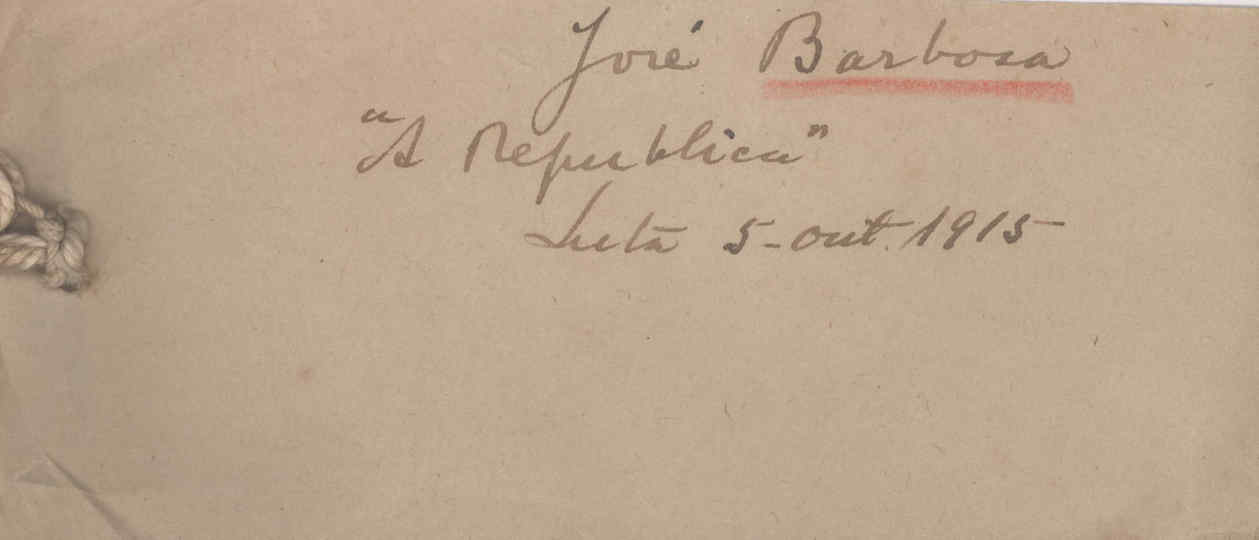 José Barbosa
"A Republica"
Lucta 5-out. 1915